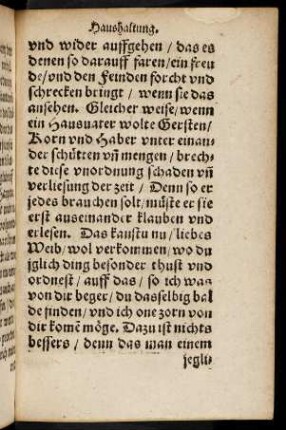 Haushaltung.
vnd wider auffgehen / das es
denen so darauff faren / ein freu
de / vnd den Feinden forcht vnd
schrecken bringt / wenn sie das
ansehen. Gleicher weise / wenn
ein Hausuater wolte Gersten /
Korn vnd Haber vnter einan-
der schütten vñ mengen / brech-
te diese vnordnung schaden vñ
verliesung der zeit / Denn so er
jedes brauchen solt / müste er sie
erst auseinander klauben vnd
erlesen. Das kanstu nu / liebes
Weib / wol verkommen / wo du
jglich ding besonder thust vnd
ordnest / auff das / so ich was
von dir beger / du dasselbig bal
de finden / vnd ich one zorn von
dir komē möge. Dazu ist nichts
bessers / denn das man einem
jegli-